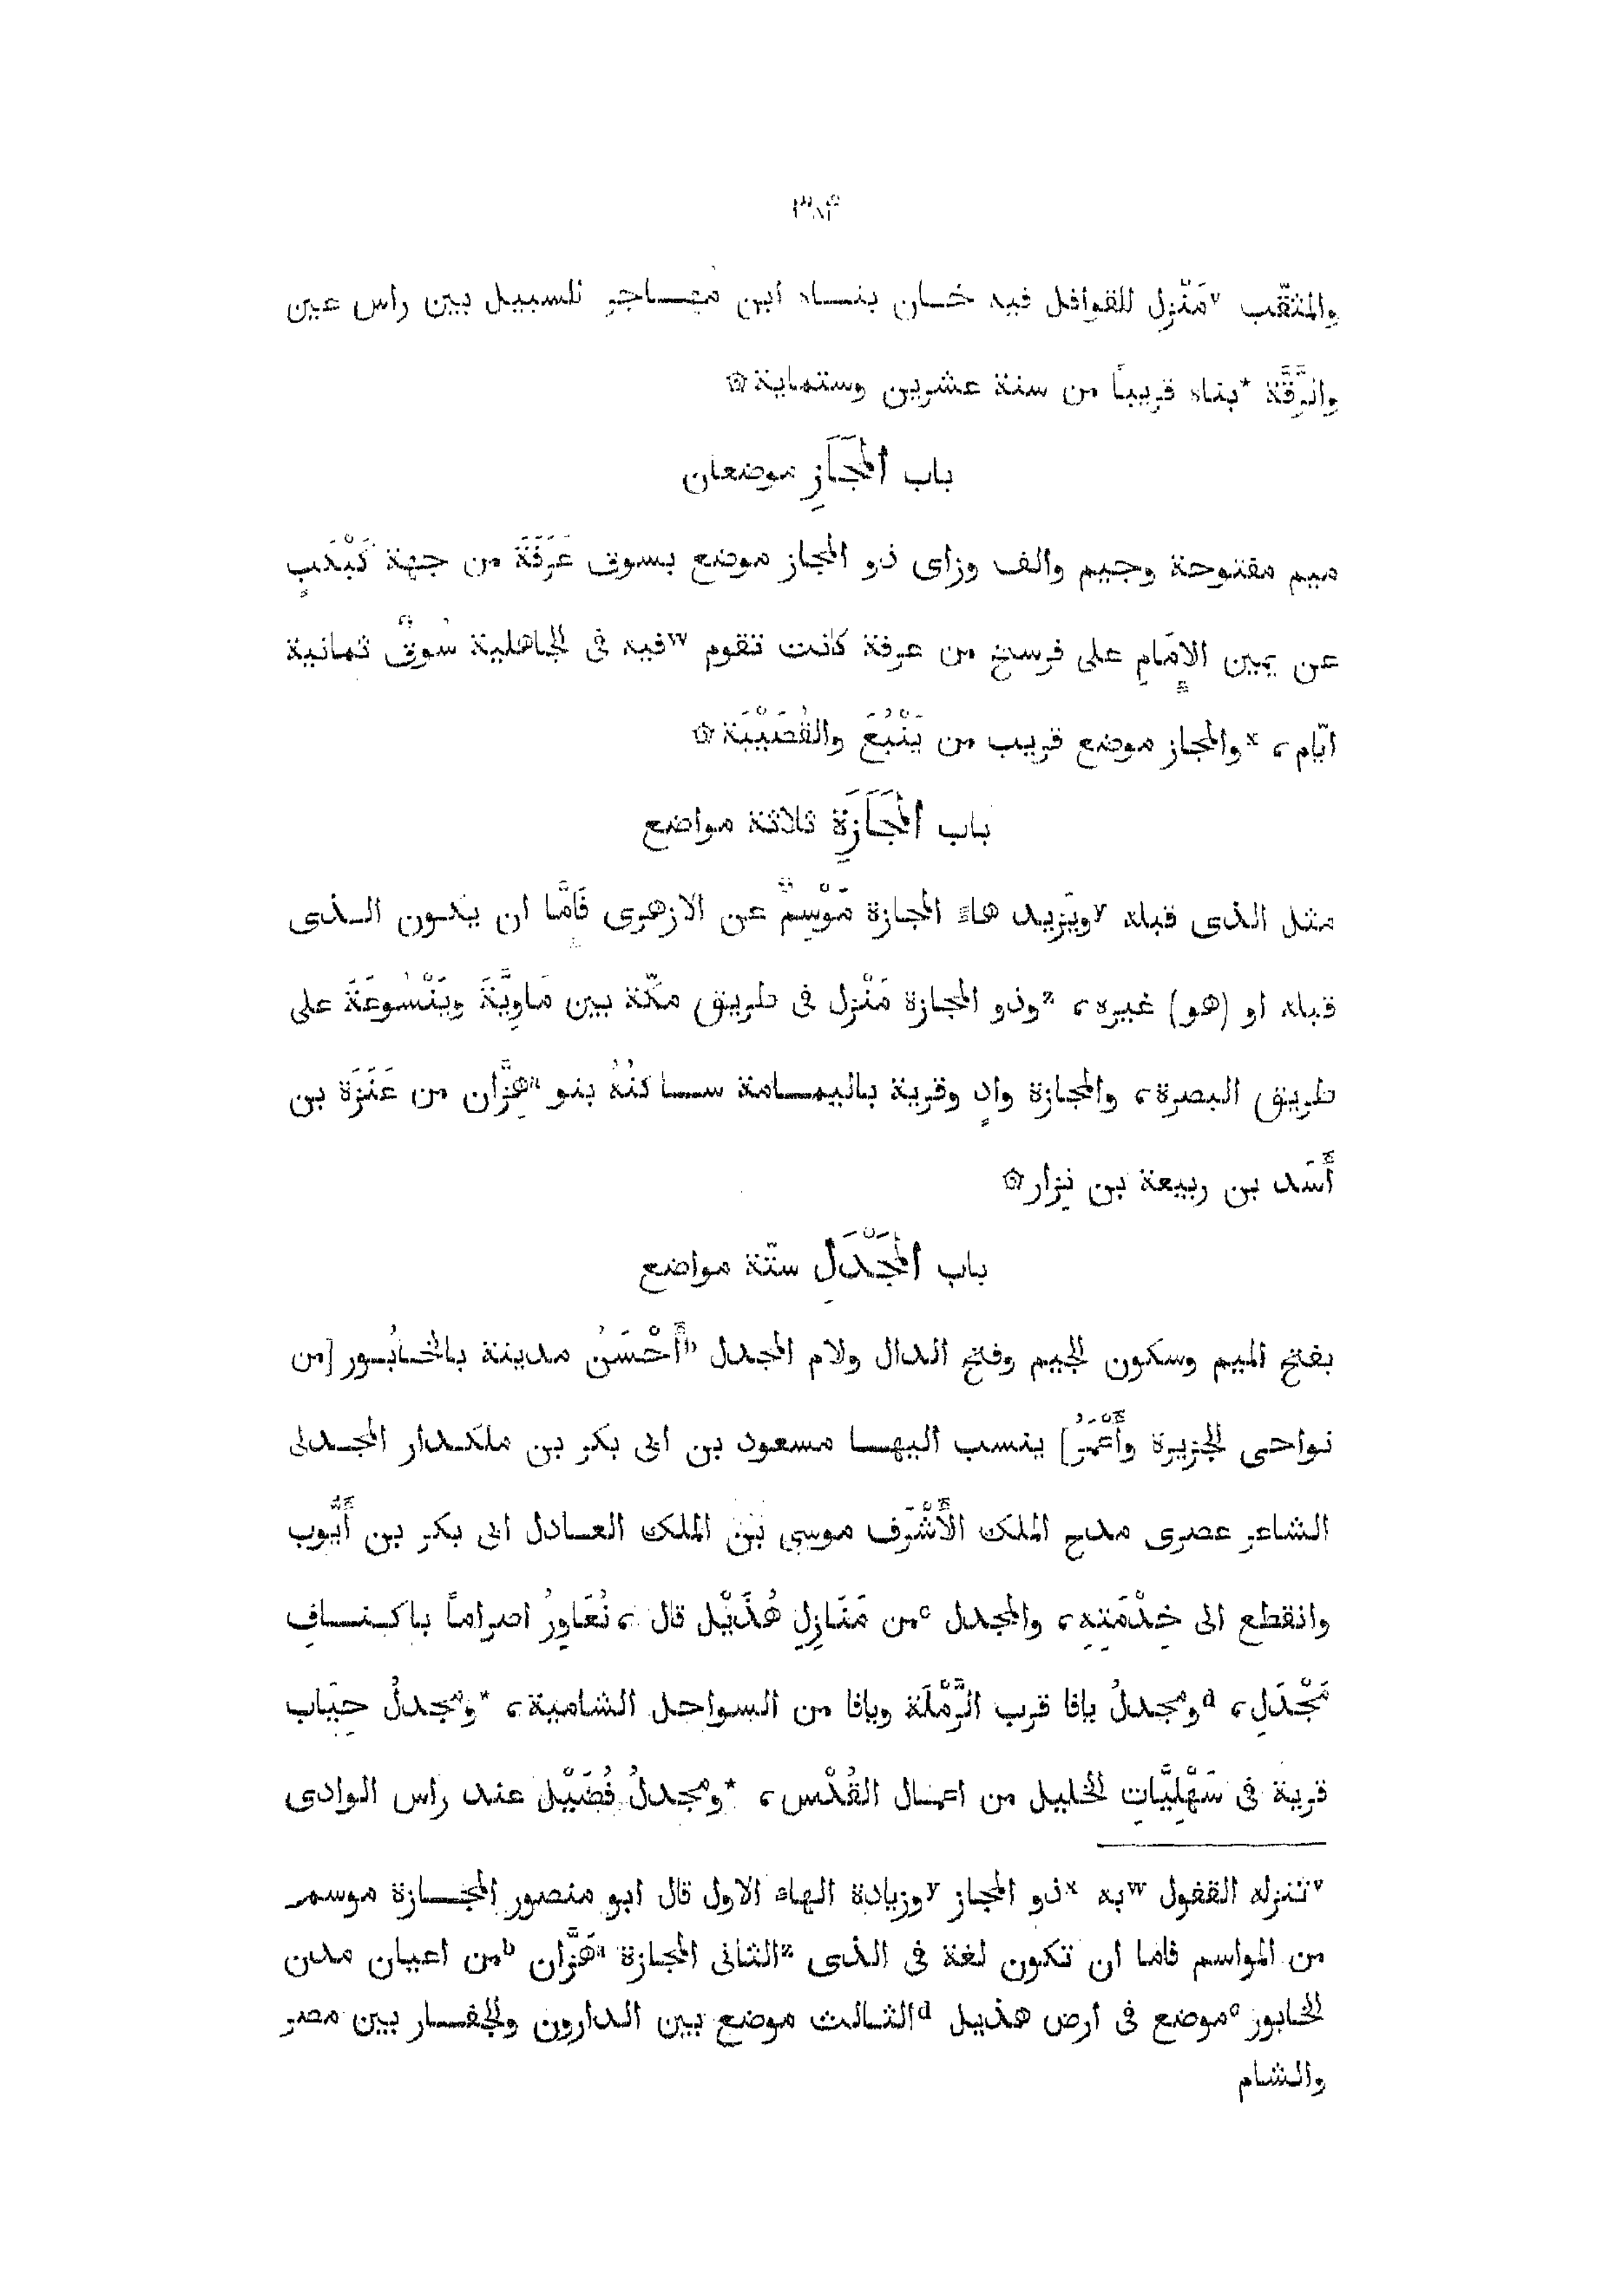 ٣٨٤
والمثقّب ᵛمَنْزِل للقوافل فيه خان بناه ابن مهاجر للسبيل بين راس عين
والرَّقَّة *بناه قريباً من سنة عشرين وستماية ۞
باب اَلْمَجَازِ موضعان
ميم مفتوحة وجيم والف وزاى ذو المجاز موضع بسوق عَرَفَةَ من جهة كَبْكَبٍ
عن يمين الإِمَامِ على فرسخ من عرفة كانت تقوم ʷفيه فى الجاهلية سُوقٌ ثمانية
ايّام، ˣوالمجاز موضع قريب من يَنْبُعَ والقُصَيْبَة ۞
باب اَلْمَجَازَةِ ثلاثة مواضع
مثل الذى قبله ʸويَزِيد هاءً المجازة مَوْسِمٌ عن الازهرى فَامَّا ان يكون الذى
قبله او (هو) غيره، ᶻوذو المجازة مَنْزِل فى طريق مكّة بين مَاوِيَّةَ ويَنْسُوعَةَ على
طريق البصرة، والمجازة وادٍ وقرية باليمامة ساكنُهُ بنو ᵃهِزَّان من عَنَزَة بن
أَسَد بن ربيعة بن نِزار ۞
باب اَلْمَجْدَلِ ستّة مواضع
بفتح الميم وسكون الجيم وفتح الدال ولام المجدل ᵇأَحْسَنُ مدينة بالخابُور [من
نواحى الجزيرة وأَعْمَرُ] ينسب اليها مسعود بن ابى بكر بن ملكدار المجدلى
الشاعر عصرى مدح الملك الأَشْرَف موسى بن الملك العادل ابى بكر بن أَيُّوب
وانقطع الى خِدْمَتِهِ، والمجدل ᶜمن مَنَازِلِ هُذَيْل قال، نُعَاوِرُ اصراماً باكنافِ
مَجْدَلِ، ᵈومجدلُ يافا قرب الرَّمْلَة ويافا من السواحل الشامية، *ومجدلُ حِبَاب
قرية فى سَهْلِيَّاتِ الخليل من اعمال القُدْس، *ومجدلُ فُضَيْل عند راس الوادى
ᵛتنزله القفول ʷبه ˣذو المجاز ʸوزيادة الهاء الاول قال ابو منصور المجازة موسم
من المواسم فاما ان تكون لغة فى الذى ᶻالثانى المجازة ᵃهَزَّان ᵇمن اعيان مدن
الخابور ᶜموضع فى ارض هذيل ᵈالثالث موضع بين الدارون والجفار بين مصر
والشام